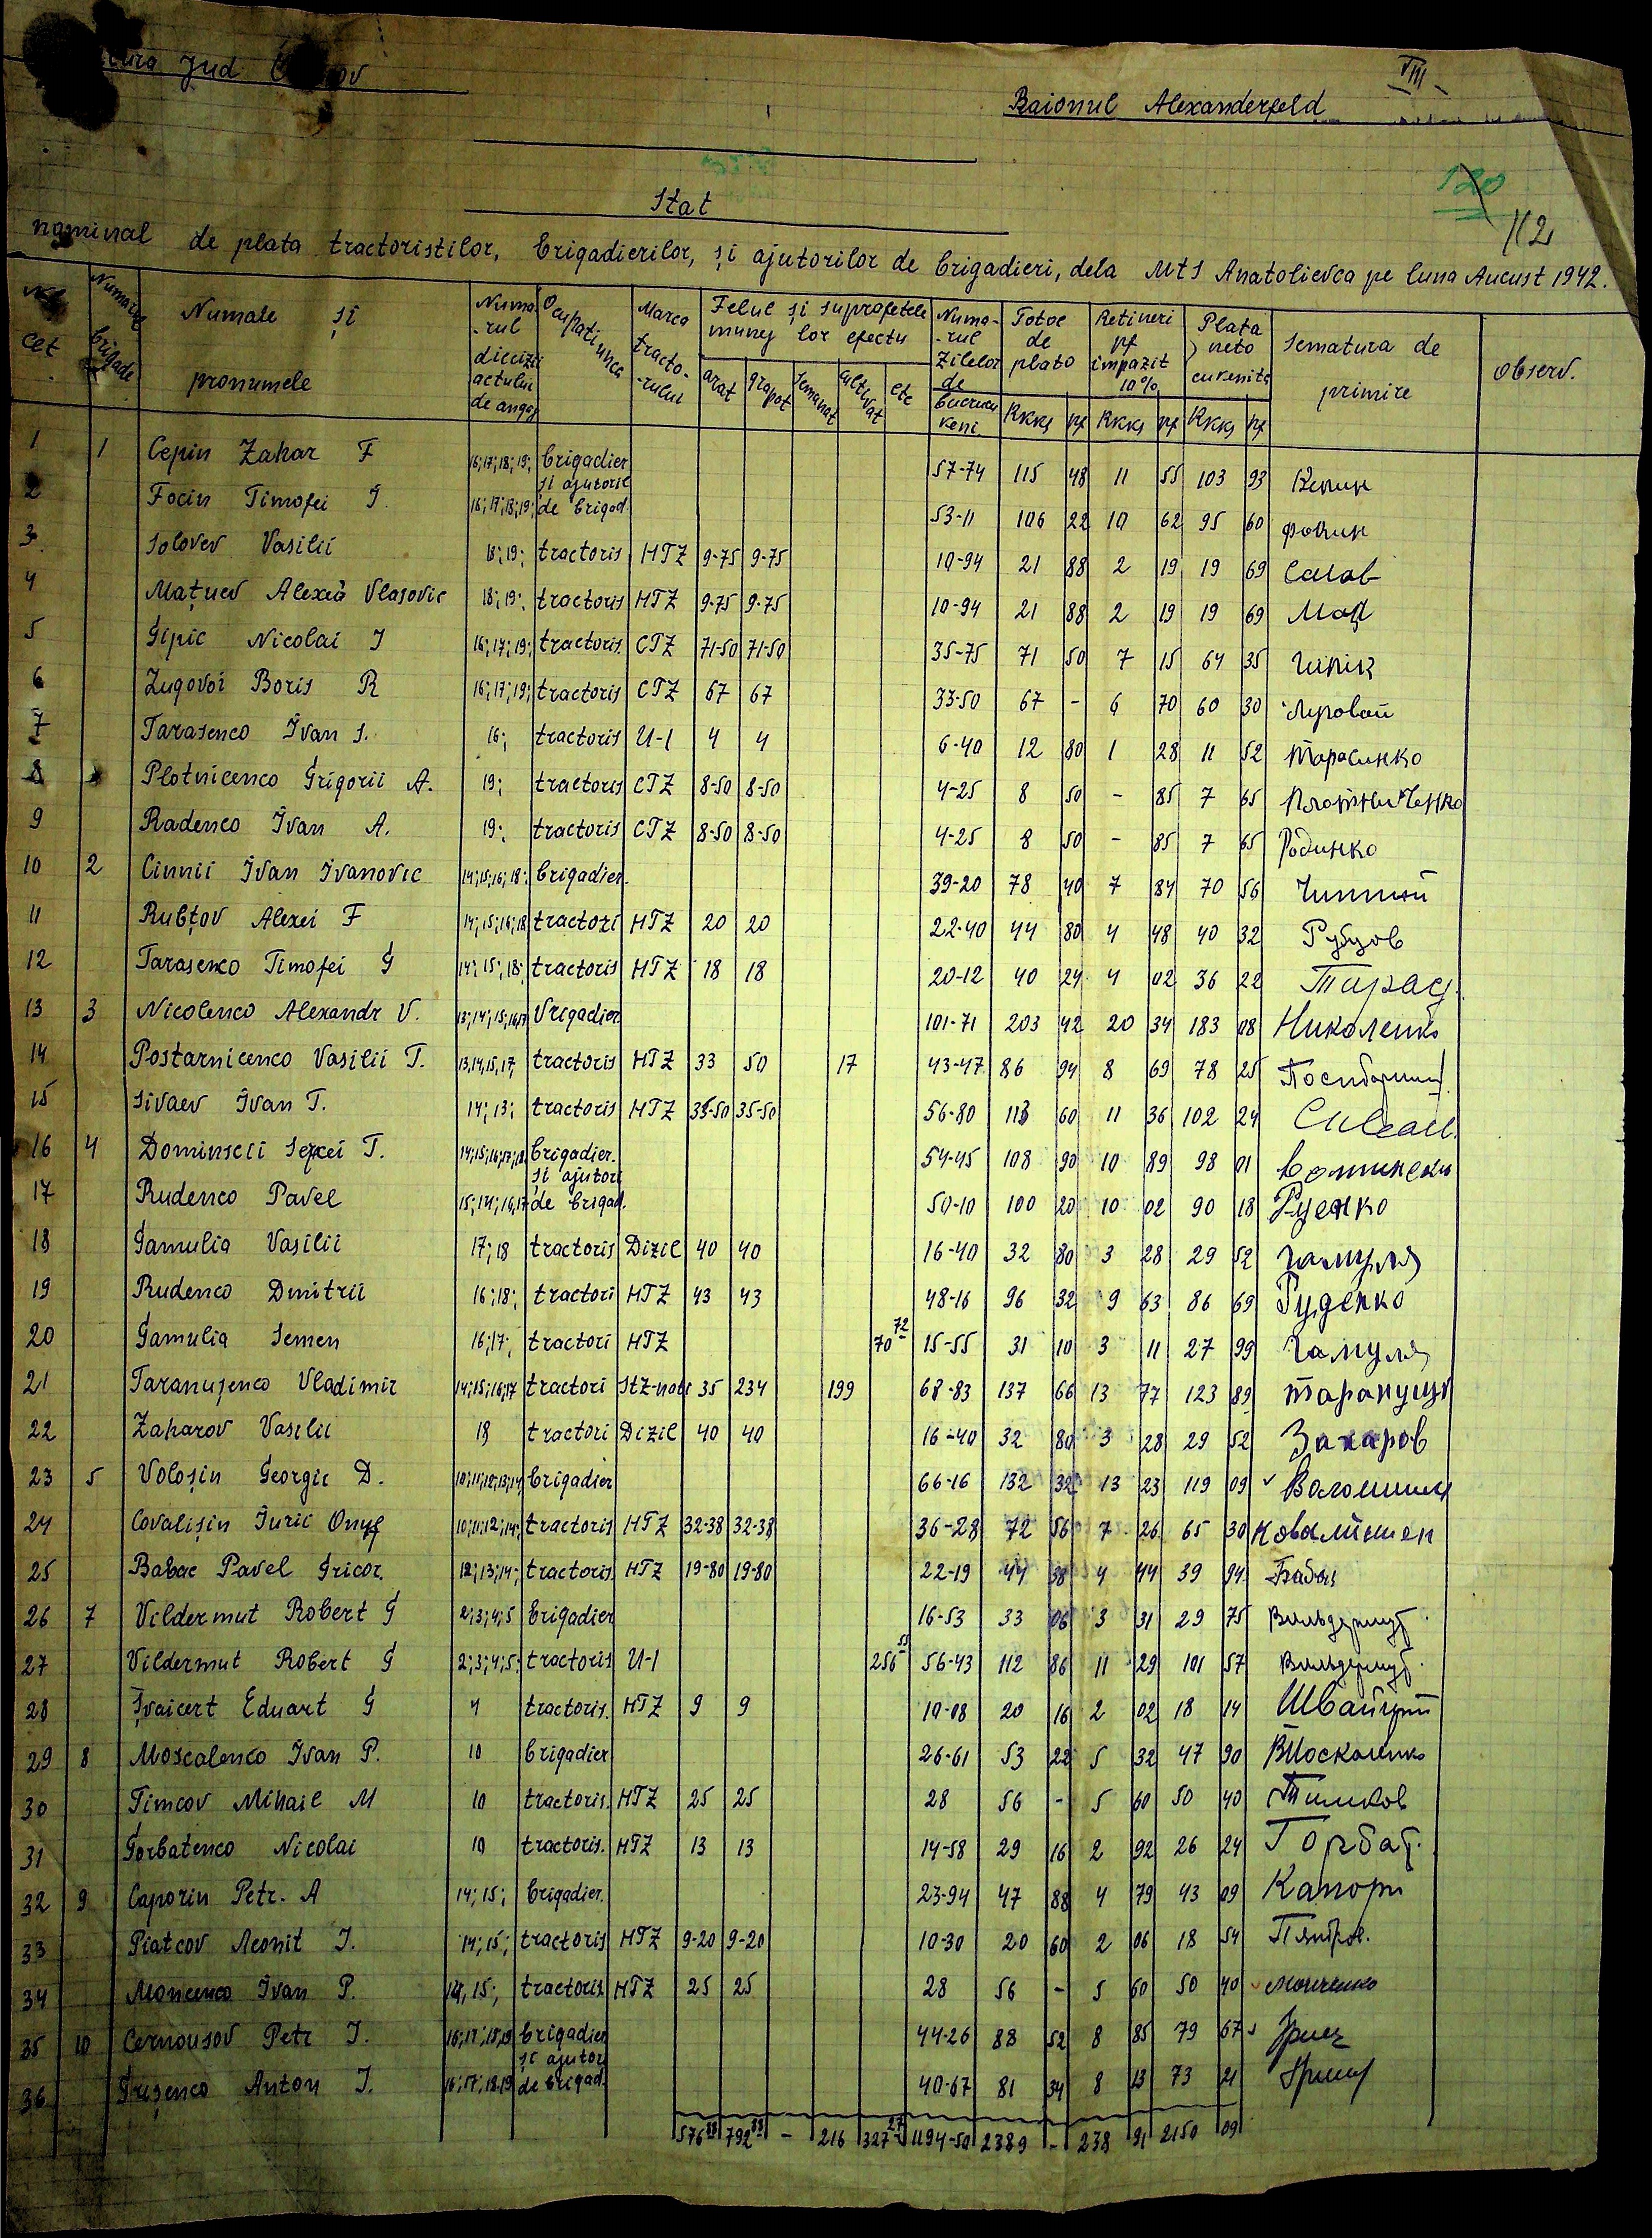 Jud
VIII
Raionul Alexanderfeld
120
112
Stat
nominal de plata tractoristilor, brigadierilor, și ajutorilor de brigadieri, dela MTS Anatolievca pe luna August 1942.
cet Numarul brigade Numale și pronumele Numa-rul diecizii actului de angaj Ocupatiunea Marca tracto-rului Felul și suprafetele muncilor efectu arat grapat semanat cultivat etc Numa-rul zilelor de Totoe de plato Rkks pf Retineri pt impazit 10% Rkks pf Plata neto cuvenita Rkks pf Sematura de primire Observ.
1 1 Cepin Zahar F 16;17;18;19; brigadier 57-74 115 48 11 55 103 93 Кепин
2 Focin Timofei I. 16;17;18;19; și ajutoril de brigad. 53-11 106 22 10 62 95 60 Фокин
3 Solovev Vasilii 18;19; tractoris HTZ 9-75 9-75 10-94 21 88 2 19 19 69
4 Mațuev Alexei Vlasovic 18;19; tractoris HTZ 9-75 9-75 10-94 21 88 2 19 19 69
5 Gipic Nicolai I 16;17;19; tractoris CTZ 71-50 71-50 35-75 71 50 7 15 64 35
6 Zugovoi Boris R 16;17;19; tractoris CTZ 67 67 33-50 67 - 6 70 60 30
7 Tarasenco Ivan S. 16; tractoris U-1 4 4 6-40 12 80 1 28 11 52 Тарасинко
8 Plotnicenco Grigorii A. 19; tractoris CTZ 8-50 8-50 4-25 8 50 - 85 7 65 Плотниченко
9 Radenco Ivan A. 19; tractoris CTZ 8-50 8-50 4-25 8 50 - 85 7 65 Родинко
10 2 Cinnii Ivan Ivanovic 14;15;16;18; brigadier. 39-20 78 40 7 84 70 56
11 Rubțov Alexei F 14;15;16;18 tractori HTZ 20 20 22-40 44 80 4 48 40 32 Рубцов
12 Tarasenco Timofei G 14;15;18; tractoris HTZ 18 18 20-12 40 24 4 02 36 22 Тарас
13 3 Nicolenco Alexandr V. 13;14;15;16,17 Vrigadier 101-71 203 42 20 34 183 08 Николенко
14 Postarnicenco Vasilii T. 13,14,15,17, tractoris HTZ 33 50 17 43-47 86 94 8 69 78 25
15 Sivaev Ivan T. 14; 13; tractoris HTZ 35-50 35-50 56-80 113 60 11 36 102 24
16 4 Dominscii Sergei T. 14;15;16;17;18 brigadier. 54-45 108 90 10 89 98 01
17 Rudenco Pavel 15;14;16,17 și ajutori de brigad. 50-10 100 20 10 02 90 18 Руденко
18 Gamulia Vasilii 17;18 tractoris Dizil 40 40 16-40 32 80 3 28 29 52 Гамуля
19 Rudenco Dmitrii 16;18; tractori HTZ 43 43 48-16 96 32 9 63 86 69 Руденко
20 Gamulia Semen 16;17; tractori HTZ 70 72 15-55 31 10 3 11 27 99 Гамуля
21 Taranușenco Vladimir 14;15;16;17 tractori 35 234 199 68-83 137 66 13 77 123 89
22 Zaharov Vasilii 18 tractori Dizil 40 40 16-40 32 80 3 28 29 52 Захаров
23 5 Voloșin Georgii D. 10;11;12;13;14 brigadier 66-16 132 32 13 23 119 09
24 Covalișin Iurii 10;11;12;14; tractoris HTZ 32-38 32-38 36-28 72 56 7 26 65 30 Ковалишен
25 Babac Pavel Gricor. 12;13;14; tractoris HTZ 19-80 19-80 22-19 44 38 4 44 39 94
26 7 Vildermut Robert G 2;3;4;5 brigadier 16-53 33 06 3 31 29 75 Вильдермут
27 Vildermut Robert G 2;3;4;5; tractoris U-1 256 55 56-43 112 86 11 29 101 57 Вильдермут
28 Șvaicert Eduart G 4 tractoris. HTZ 9 9 10-08 20 16 2 02 18 14
29 8 Moscalenco Ivan P. 10 brigadier 26-61 53 22 5 32 47 90 Москаленко
30 Timcov Mihail M 10 tractoris. HTZ 25 25 28 56 - 5 60 50 40 Тимков
31 Gorbatenco Nicolai 10 tractoris. HTZ 13 13 14-58 29 16 2 92 26 24 Горбат.
32 9 Caporin Petr. A 14;15; brigadier. 23-94 47 88 4 79 43 09
33 Piatcov Leonit I. 14;15; tractoris HTZ 9-20 9-20 10-30 20 60 2 06 18 54
34 Moncenco Ivan P. 14,15; tractoris HTZ 25 25 28 56 - 5 60 50 40
35 10 Cernousov Petr I. 16;17;18,19 brigadier 44-26 88 52 8 85 79 67
36 Grișenco Anton I. 16;17;18,19 și ajutor de brigad. 40-67 81 34 8 13 73 21
576 88 792 88 - 216 327 27 1194-50 2389 - 238 91 2150 09